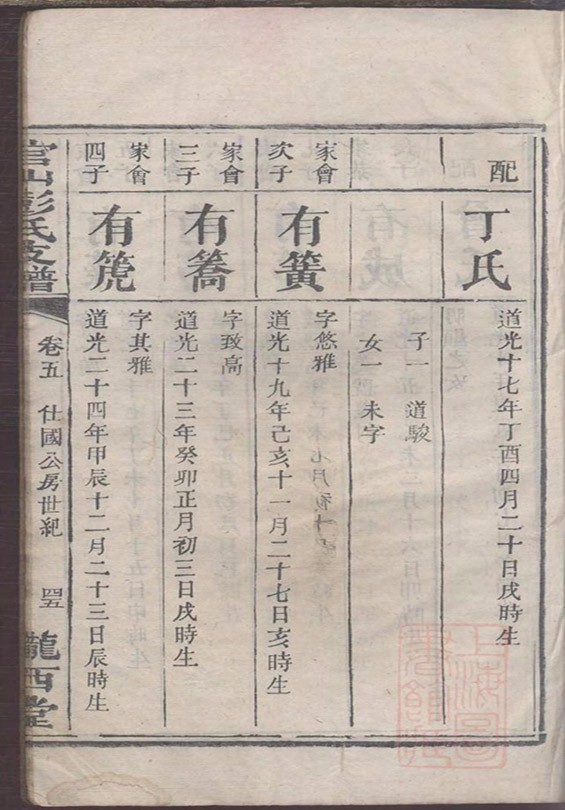 配
丁氏
道光十七年丁酉四月二十日戌時生
子一 道駿
女一 未字
家會
次子
有簧
字悠雅
道光十九年己亥十一月二十七日亥時生
家會
三子
有簥
字致高
道光二十三年癸卯正月初三日戌時生
家會
四子
有箎
字其雅
道光二十四年甲辰十二月二十三日辰時生
官山彭氏支譜
卷五 仕國公房世紀 四五
隴西堂
上海圖書館藏